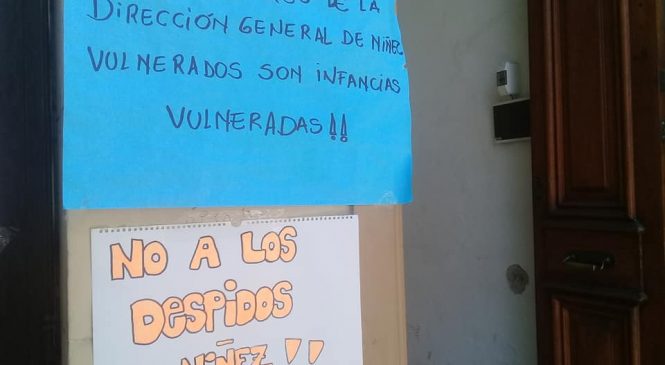 DE LA
DIRECCIÓN GENERAL DE NIÑEZ
VULNERADOS SON INFANCIAS
VULNERADAS!!
NO A LOS
DESPIDOS
NIÑEZ!!